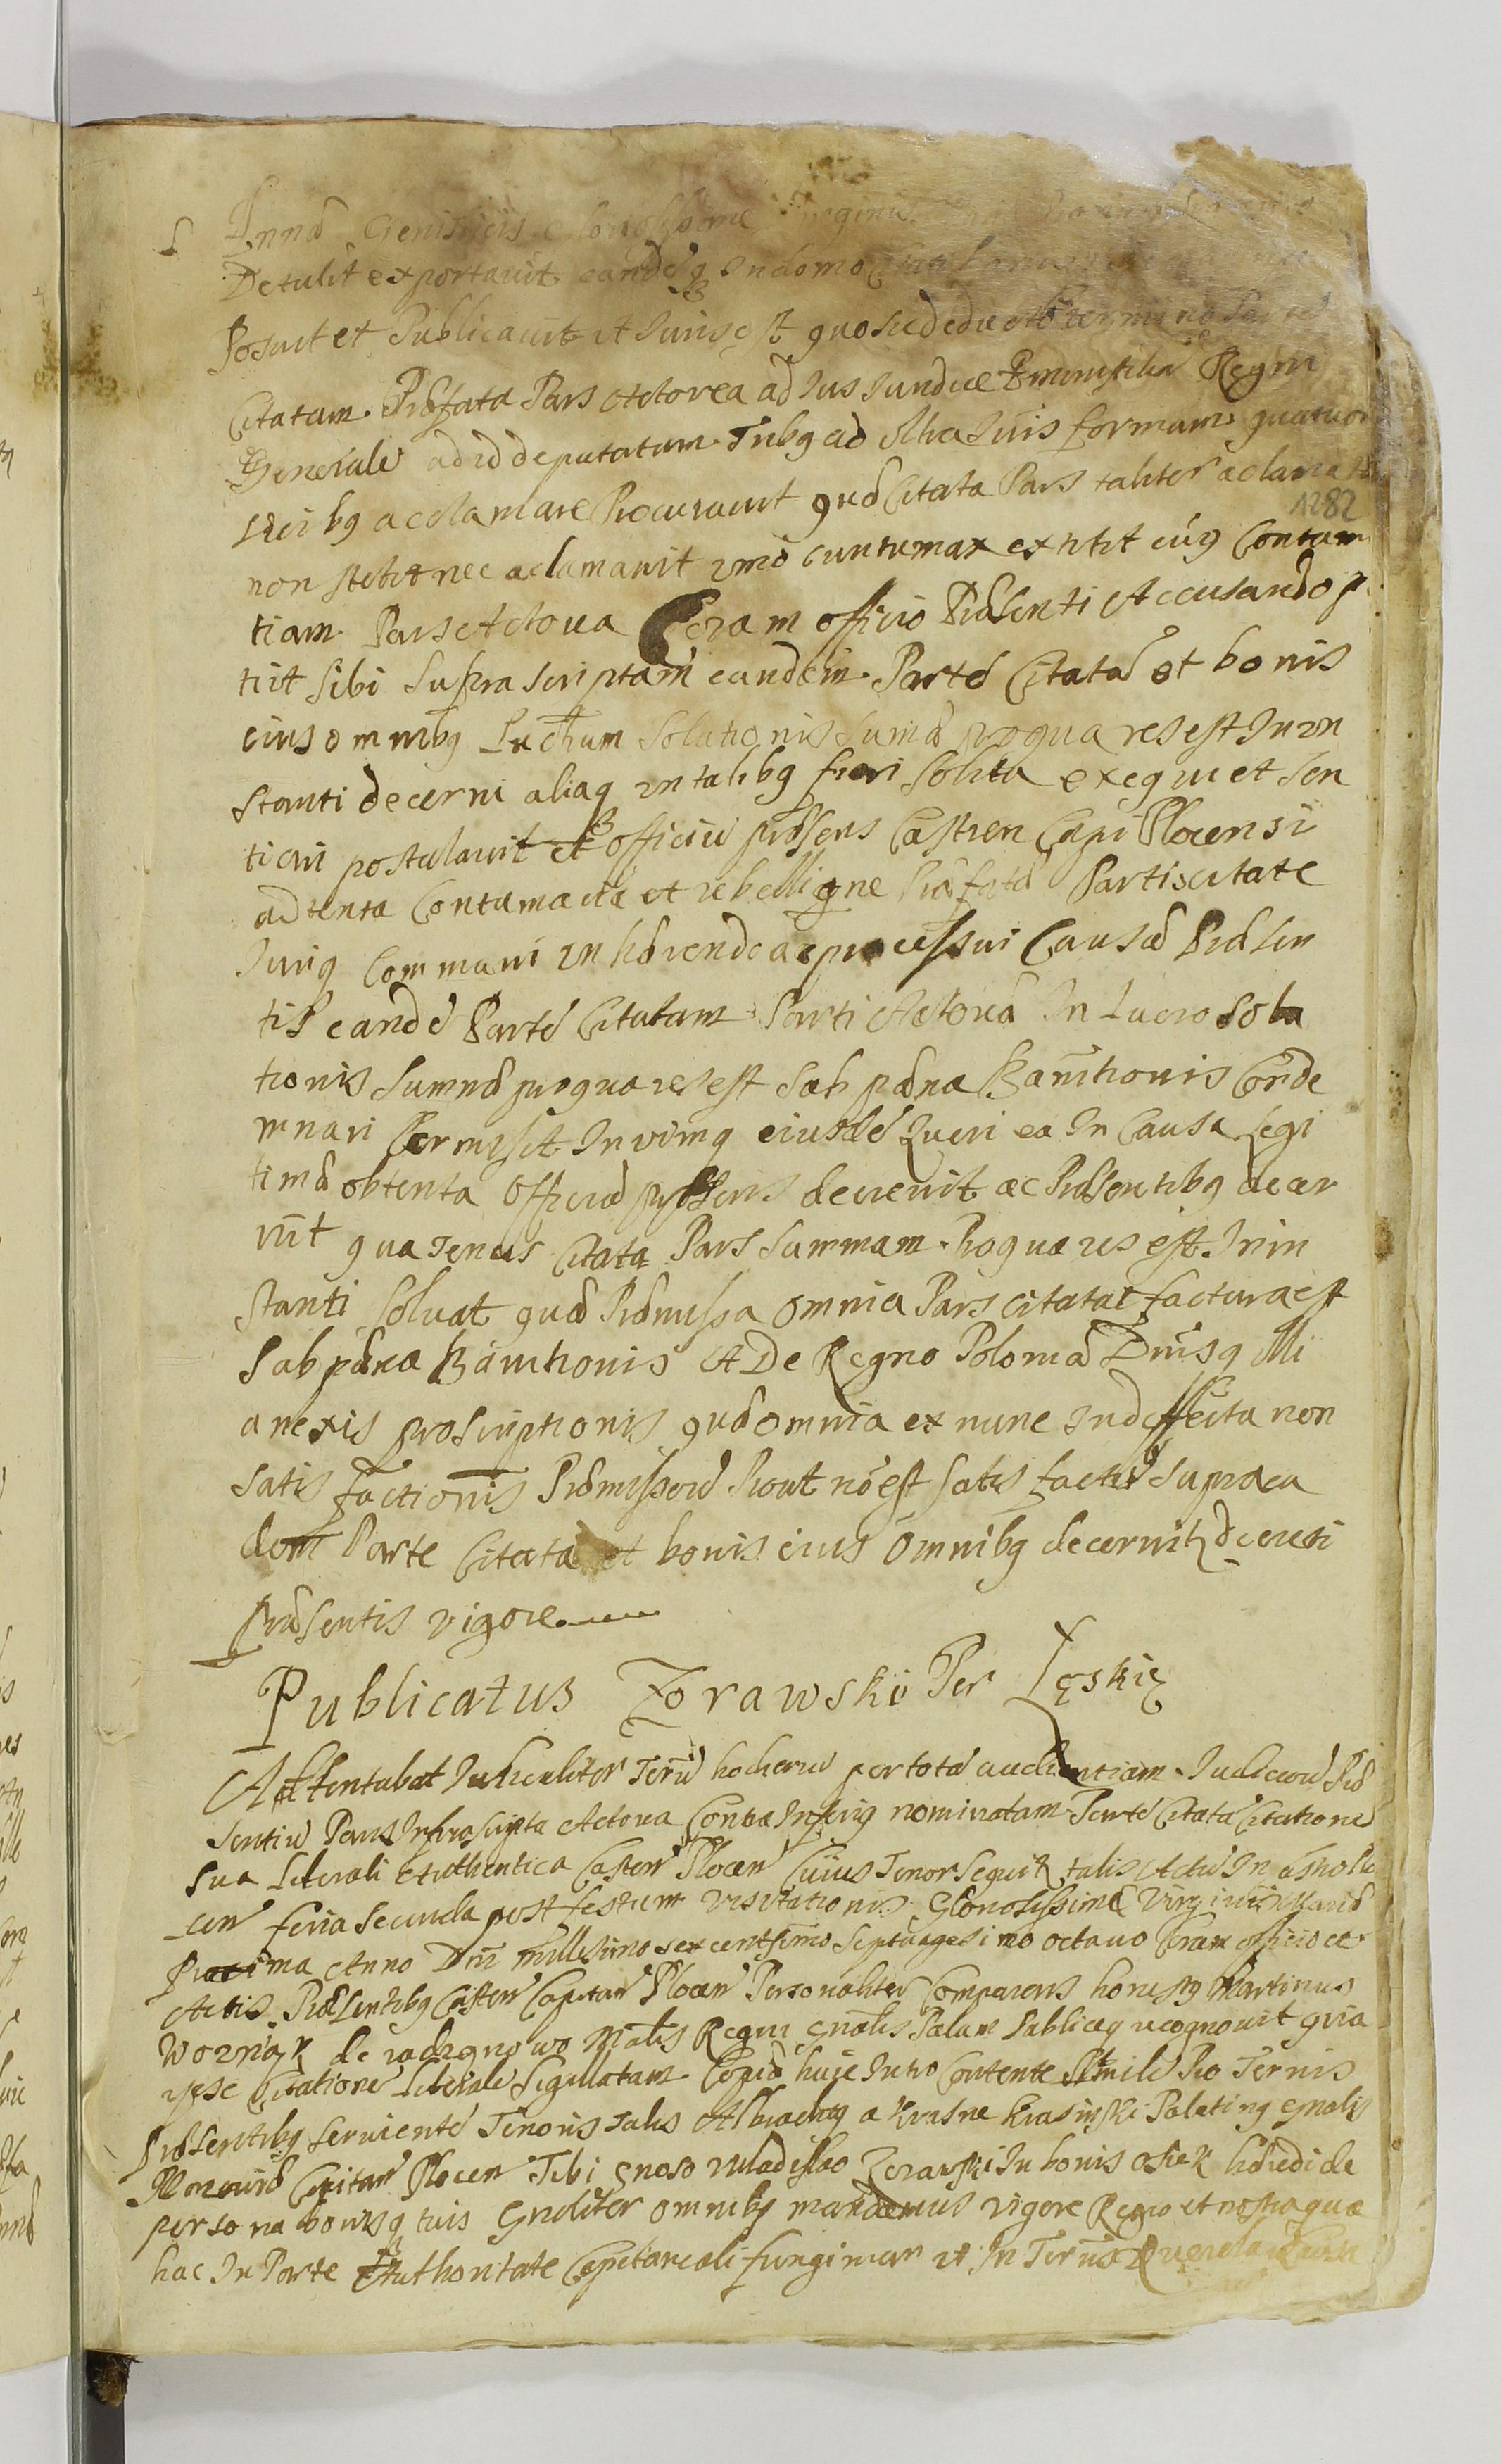 Detulit exportavit eandēq In domo
Posuit et Publicavit ut Juris est quo sic deducto termino
Citatam. Præfata Pars Actorea ad Jus Judice Ministeriale Regni
Generale ad id deputatum Tribq ad Juris formam quatuor
vicibq acclamare Procuravit quæ Citata Pars taliter aclamata
1282
non stetit nec aclamavit imo cuntumax extitit cuiq Contum
tiam Pars Actorea Coram officio Præsenti Accusando p
tiit sibi supra scriptam eandem Partē Citatā et bonis
eius omnibq Lucrum Solutionis Sumæ pro qua res est In in
stanti decerni aliaq in talibq fieri solita exequi et sen
tiari postulavit et officiū præsens Castren Capi Plocensi
adtenta Contumacia et rebellione Præfatæ Partis citate
Juriq Communi inhærendo ac processui Causæ Præsen
tis eandē Partē Citatam Parti Actoreæ In Lucro Solu
tionis Summæ pro qua res est sub pæna Banitionis Conde
mnari Permisit In vimq eiusdē Lucri ea In Causa Legi
timæ obtenta Officiū præsens decrevit ac Præsentibq decer
nit quatenus Citata Pars Summam Pro qua res est In in
stanti Solvat quæ Præmissa omnia Pars citatae factura est
Sub pæna Banitionis A De Regno Poloniæ Dniisq Illi
anexis proscriptionis quæ omnia ex nunc In deffectu non
satis factionis Præmissorū Prout nō est satis factū Supra ea
dem Parte Citata et bonis eius omnibq decernit decreti
præsentis vigore
Publicatus Zorawski Per Łęskię
Attentabat Judicialiter Terū hodiernū per totā audientiam Judiciorū Præ
sentiū Pars Infrascripta Actorea Contra Inferiq nominatam Partē Citatā Citatione
sua Literali Authentica Castren Plocen Cuius Tenor Sequitr talis Actū In
cen feria secunda post festum visitationis Gloriosissimæ Virginis Mariæ
proxima Anno Dni millesimo sexcentesimo Septuagesimo octavo Coram officio et
Actis Præsentibq Castren Capitan Plocen Personaliter Comparens honestq Martinus
Wozniak de Mnalis Regni Gnalis Palam Publiceq recognovit quia
ipse Citationē Literalē Sigillatam Copiæ huic Intro Contente Similē Pro Ternis
Præsentibq servientē Tenoris talis Albrachtq a Krasne Krasinski Palatinq Gnalis
Capitan Plocen Tibi Gnoso Vladislao Zorawski In bonis hæredi de
persona bonisq tuis Gnaliter omnibq mandamus vigore Regio et nostra qua
hac In Parte Authoritate Capitaneali fungimur ut In